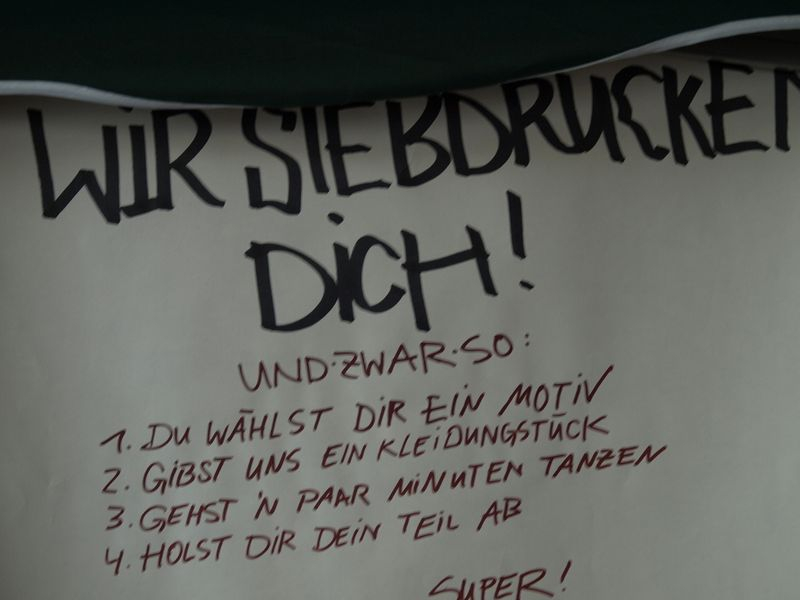 WIR SIEBDRUCKEN
DICH!
UND·ZWAR·SO:
1. DU WÄHLST DIR EIN MOTIV
2. GIBST UNS EIN KLEIDUNGSTÜCK
3. GEHST 'N PAAR MINUTEN TANZEN
4. HOLST DIR DEIN TEIL AB
SUPER!